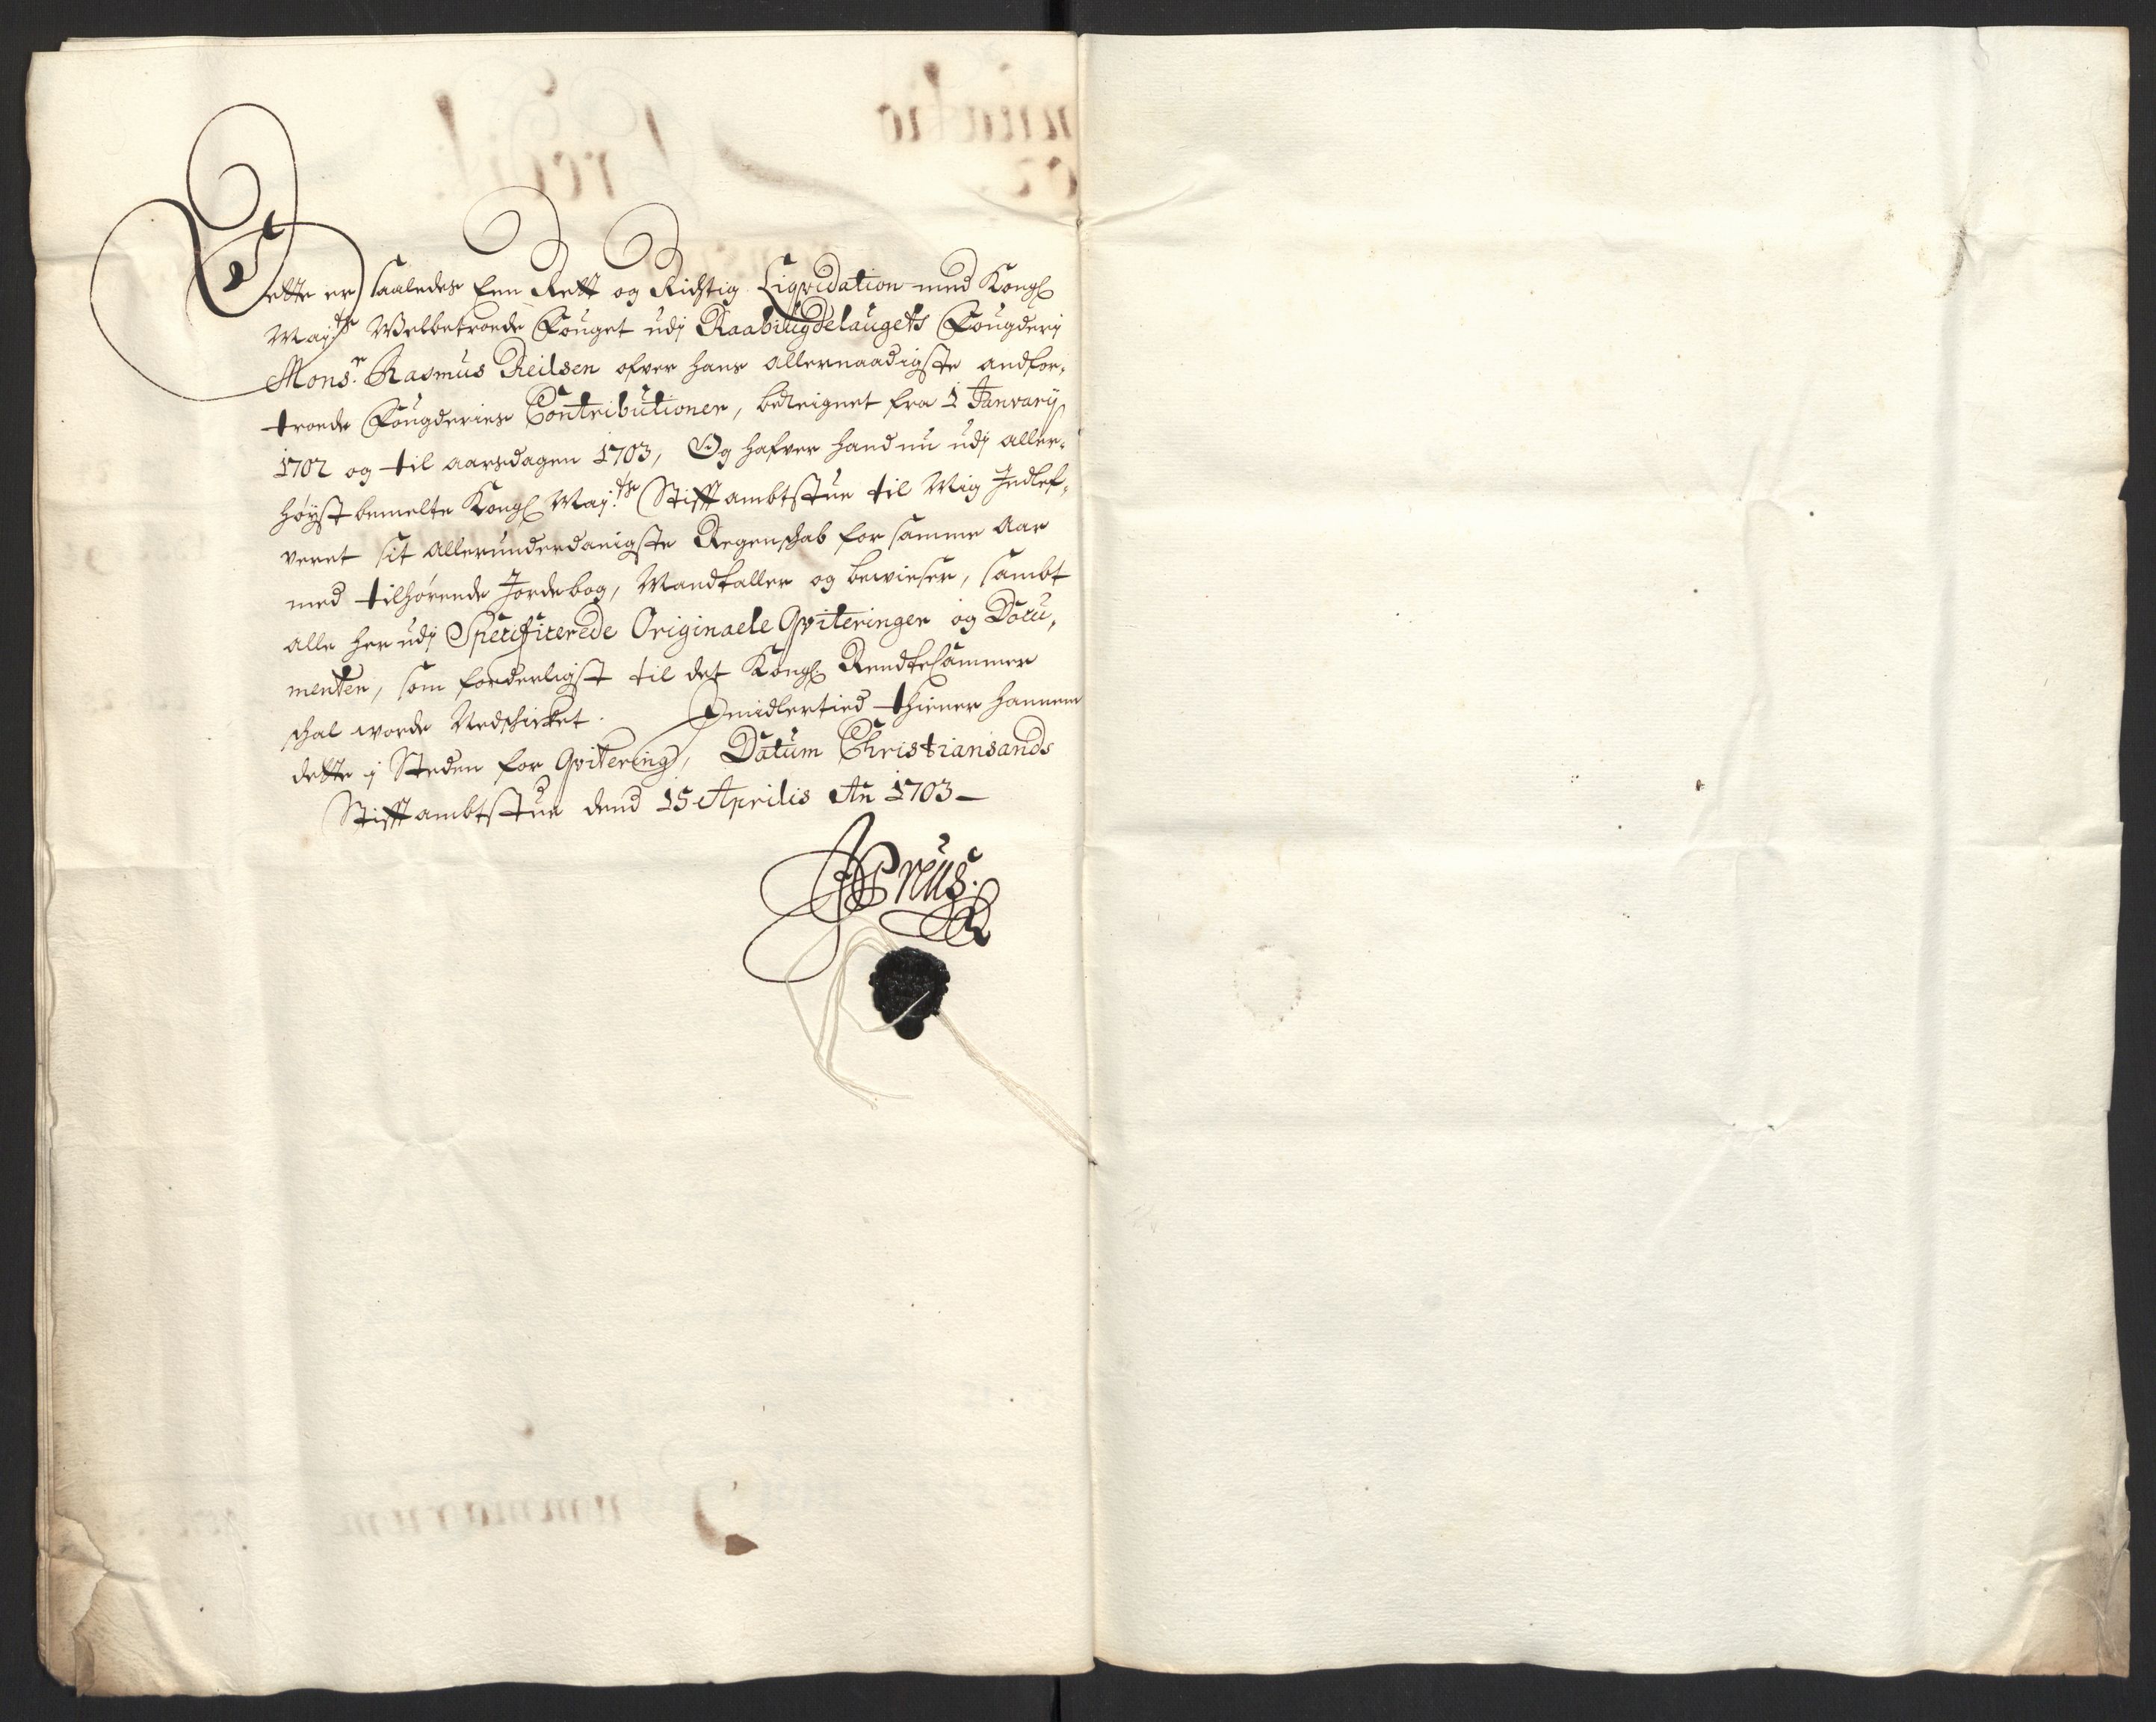 Dette er saaledes Een Rett og Richtig Liqvidation med Kongl
May:ts Welbetroede Fouget udj Raabiugdelaugets Fougderj
Mons:r Rasmus Neilsen ofver hans allernaadigste andfor-
troede Fougderies Contributioner, bereignet fra 1 Januarij
1702 og til aarsdagen 1703, Og hafver hand nu udj aller-
høyst bemelte Kongl May:ts Stifftambtstue til Mig Indlef-
veret sit allerunderdanigste Regenschab for samme Aar
med tilhørende Jordebog, Mandtaller og bewieser, sambt
alle her udj Specificerede Originaele Qviteringer og Docu-
menten, som forderligst til det Kongl Rendtecammer
schal worde Nedschicket. Jmidlertied thiener hannem
dette j Steden for Qvitering, Datum Christiansands
Stifftambtstue dend 15 Aprilis An 1703